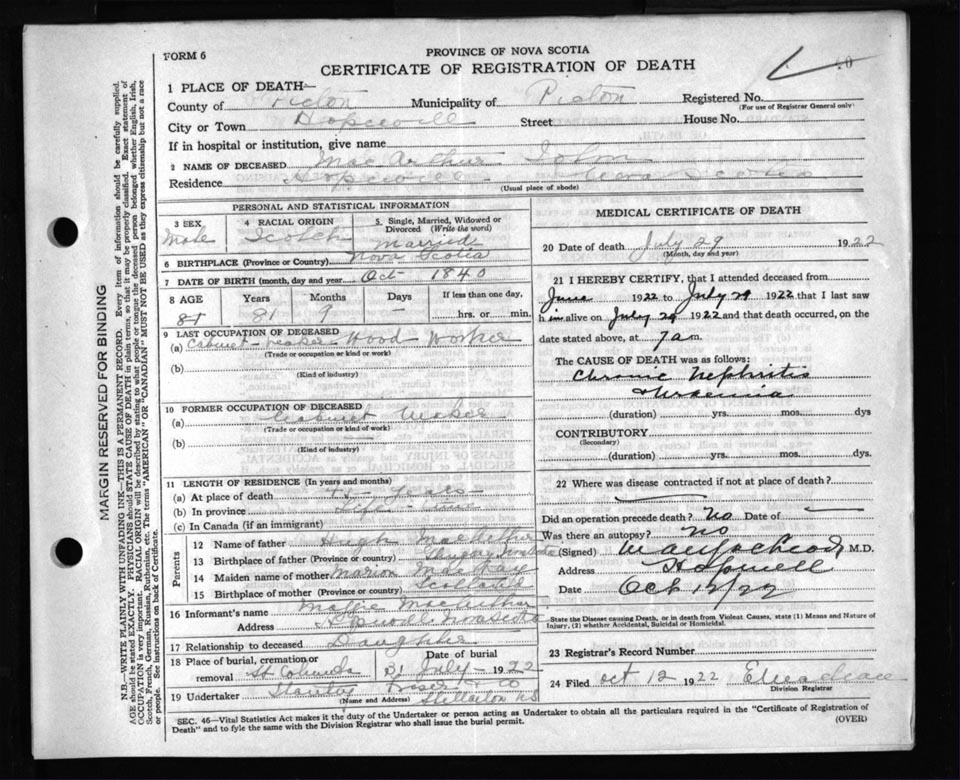 FORM 6
PROVINCE OF NOVA SCOTIA
CERTIFICATE OF REGISTRATION OF DEATH
1 PLACE OF DEATH—
County of Pictou Municipality of Pictou Registered No.
(For use of Registrar General only)
City or Town Hopewell Street House No.
If in hospital or institution, give name
2 NAME OF DECEASED MacArthur John
Residence Hopewell Nova Scotia
(Usual place of abode)
PERSONAL AND STATISTICAL INFORMATION
3 SEX Male
4 RACIAL ORIGIN Scotch
5 Single, Married, Widowed or Divorced (Write the word) Married
6 BIRTHPLACE (Province or Country) Nova Scotia
7 DATE OF BIRTH (month, day and year) Oct 1840
8 AGE Years Months Days If less than one day,
81 81 9 — hrs. or min.
9 LAST OCCUPATION OF DECEASED
(a) Cabinet-maker Wood Worker
(Trade or occupation or kind or work)
(b)
(Kind of industry)
10 FORMER OCCUPATION OF DECEASED
(a) Cabinet Maker
(Trade or occupation or kind of work)
(b) —
(Kind of industry)
11 LENGTH OF RESIDENCE (In years and months)
(a) At place of death years
(b) In province Life time
(c) In Canada (if an immigrant)
Parents
12 Name of father Hugh MacArthur
13 Birthplace of father (Province or country)
14 Maiden name of mother Marion MacKay
15 Birthplace of mother (Province or country)
16 Informant's name MacArthur
Address Hopewell Nova Scotia
17 Relationship to deceased Daughter
18 Place of burial, cremation or removal St Columba Date of burial 31 July 1922
19 Undertaker
(Name and Address) Stellarton NS
MEDICAL CERTIFICATE OF DEATH
20 Date of death July 29 1922
(Month, day and year)
21 I HEREBY CERTIFY, that I attended deceased from
June 1922 to July 29 1922 that I last saw
h im alive on July 29 1922 and that death occurred, on
date stated above, at 7 a m.
The CAUSE OF DEATH was as follows:
Chronic Nephritis
Uraemia
(duration) yrs. mos. dys
CONTRIBUTORY
(Secondary)
(duration) yrs. mos. dys.
22 Where was disease contracted if not at place of death?
Did an operation precede death? No Date of —
Was there an autopsy? No
(Signed) M.D.
Address Hopewell
Date Oct 12/22
State the Disease causing Death, or in death from Violent Causes, state (1) Means and Nature of
Injury, (2) whether Accidental, Suicidal or Homicidal.
23 Registrar's Record Number
24 Filed Oct 12 1922
Division Registrar
SEC. 46—Vital Statistics Act makes it the duty of the Undertaker or person acting as Undertaker to obtain all the particulars required in the "Certificate of Registration of
Death" and to fyle the same with the Division Registrar who shall issue the burial permit. (OVER)
MARGIN RESERVED FOR BINDING
N.B.—WRITE PLAINLY WITH UNFADING INK—THIS IS A PERMANENT RECORD. Every item of information should be carefully supplied.
AGE should be stated EXACTLY. PHYSICIANS should STATE CAUSE OF DEATH in plain terms, so that it may be properly classified. Exact statement of
OCCUPATION is very important. RACIAL ORIGIN will be described by stating to what people or tongue the deceased person belonged whether English, Irish,
Scotch, French, German, Russian, Ruthenian, etc. The terms "AMERICAN" OR "CANADIAN" MUST NOT BE USED as they express citizenship but not a race
or people. See instructions on back of Certificate.